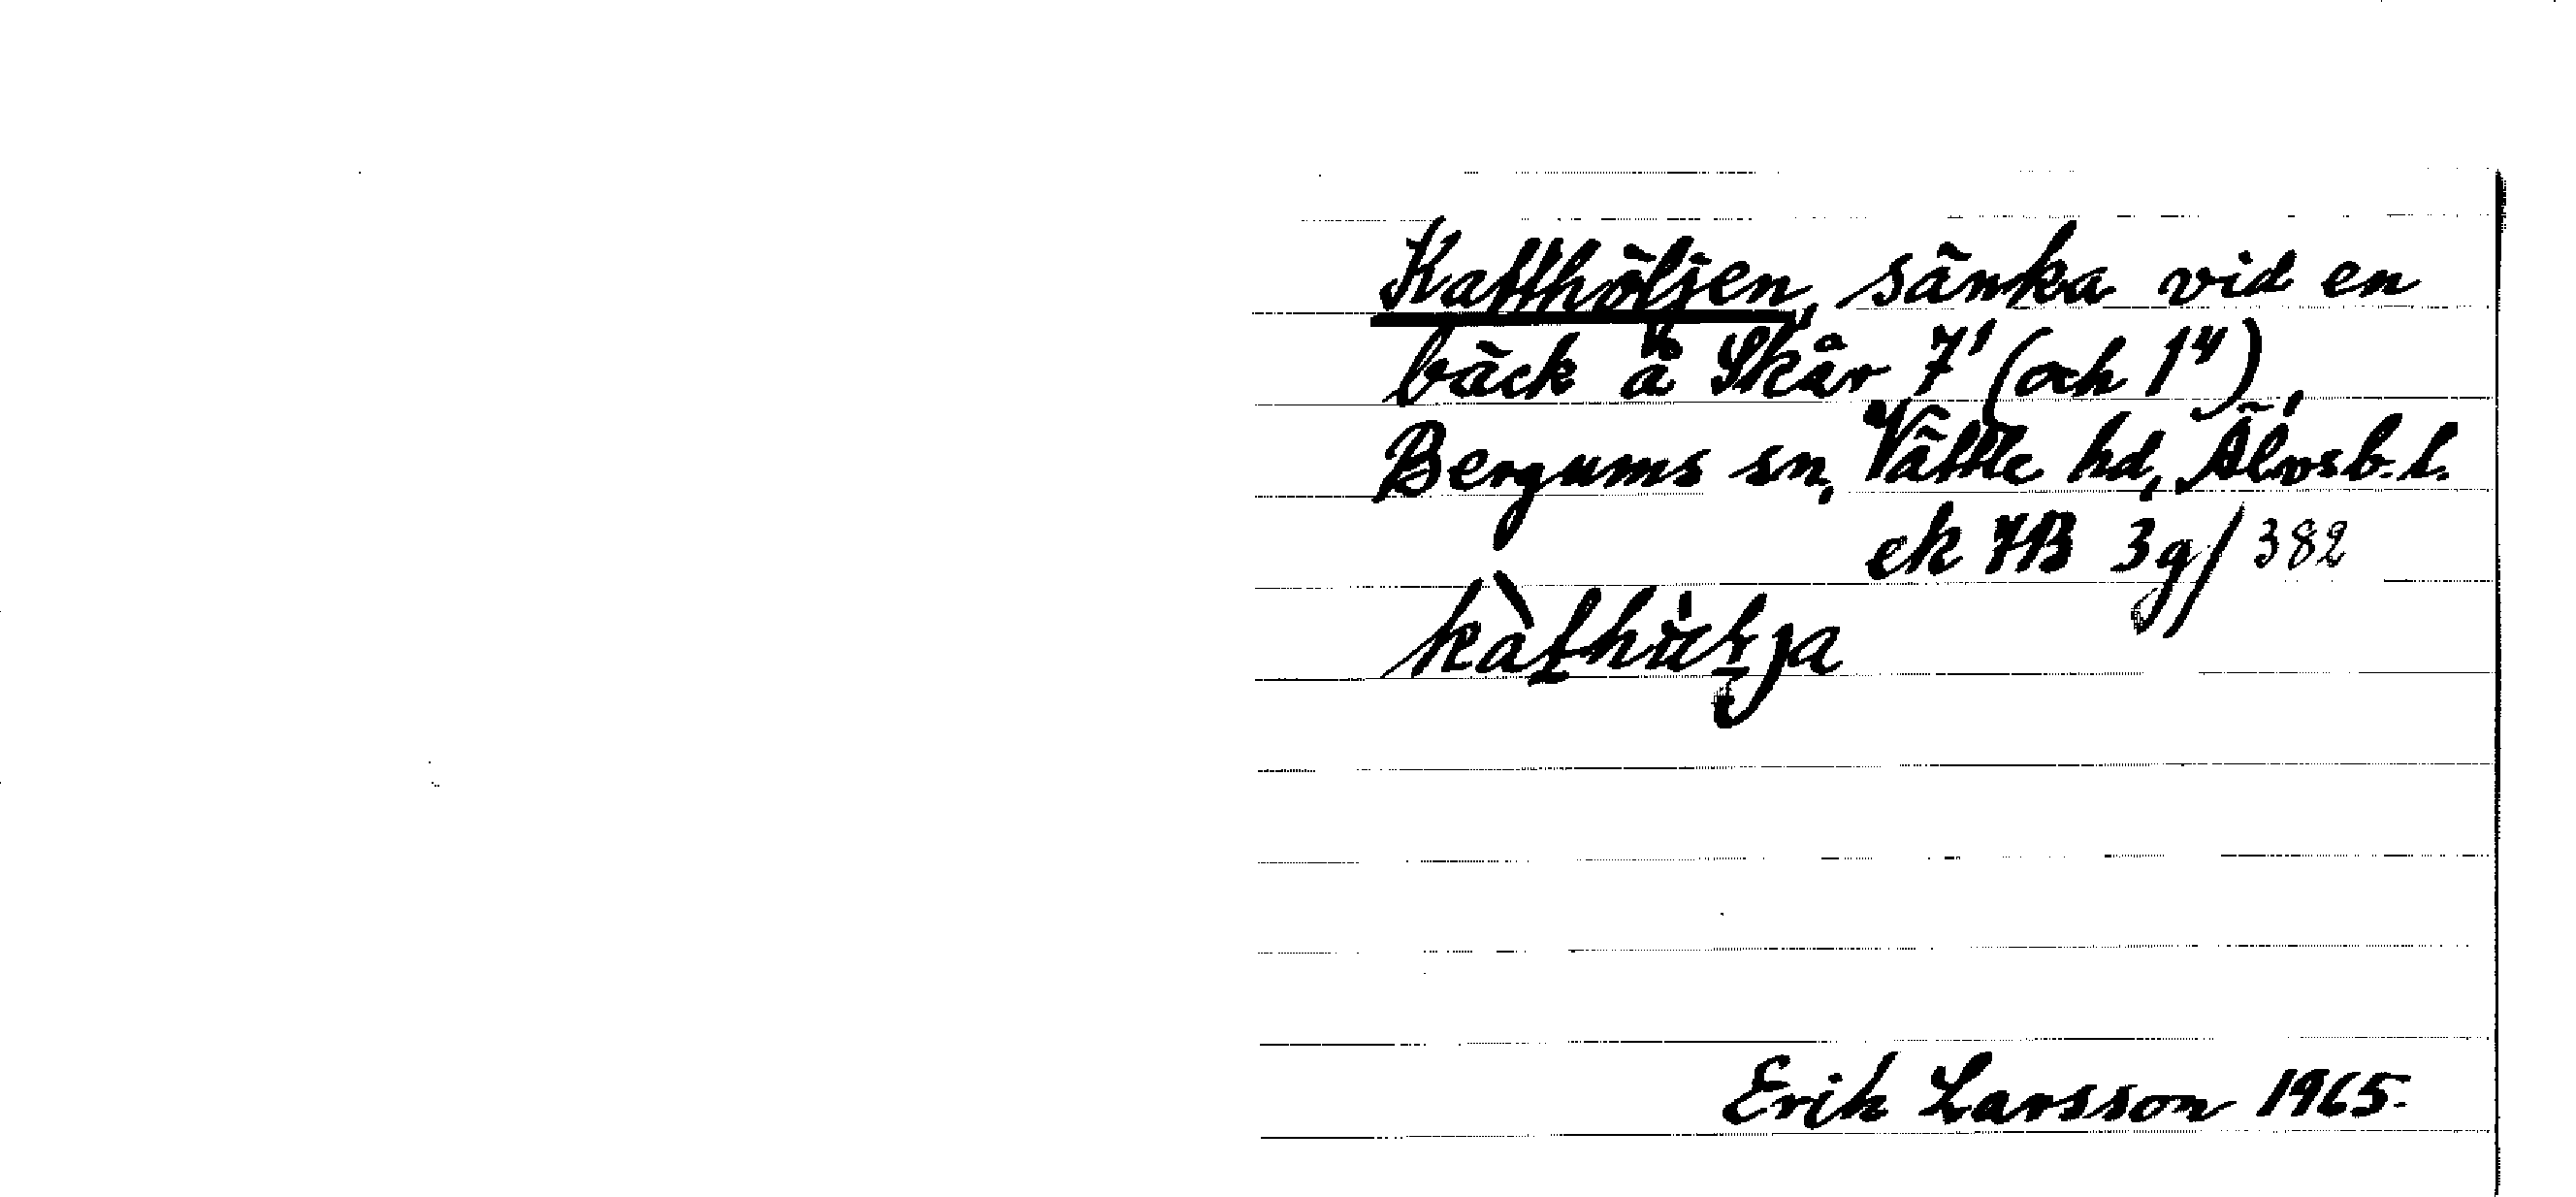 Katthöljen, sänka vid en
bäck å Skår 7¹ (och 1⁴),
Bergums sn, Vättle hd, Älvsb. l.
ek 7B 3g/382
Erik Larsson 1965.